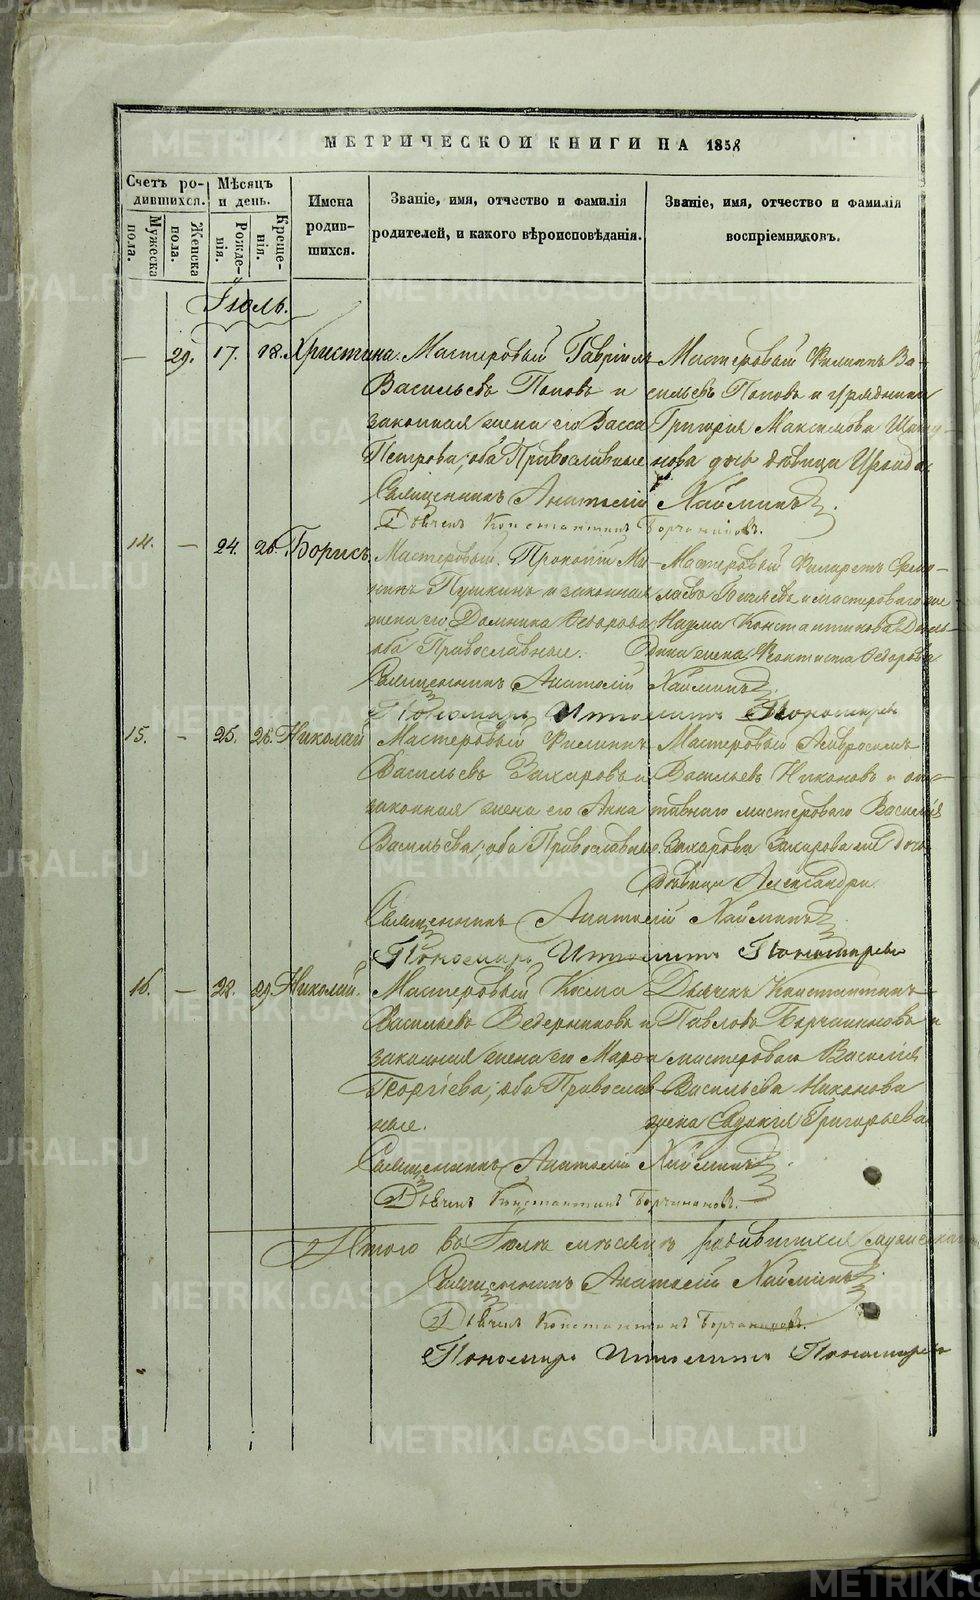 МЕТРИЧЕСКОЙ КНИГИ НА 1858
Счетъ ро-
дившихся.
Мужеска пола.
Женска пола.
Мѣсяцъ
и день.
Рожде-
нія.
Креще-
нія.
Имена
родив-
шихся.
Званіе, имя, отчество и фамилія
родителей, и какого вѣроисповѣданія.
Званіе, имя, отчество и фамилія
воспріемниковъ.
Іюль.
— 29. 17. 18. Христина.
Мастеровый Гавріилъ
Васильевъ Поповъ и
законная жена его Васса
Петрова; оба Православные
Мастеровый Филиппъ Ва-
сильевъ Поповъ и урядника
Григорія Максимова
дочь дѣвица
Священникъ Анатолій
Дьячекъ Константинъ Борчаниновъ.
14. — 24. 26. Борисъ.
Мастеровый Прокопій
Пушкинъ и законная
жена его Домника Ѳедорова
оба Православные.
Мастеровый Филаретъ
и мастероваго
Наума Константинова
жена Ѳедорова
Священникъ Анатолій
Пономарь Ипполитъ Пономаревъ
15. — 25. 26. Николай
Мастеровый Филиппъ
Васильевъ Захаровъ и
законная жена его Анна
Васильева; оба Православные.
Мастеровый Амвросимъ
Васильевъ Никоновъ и от-
ставнаго мастероваго Василія
Захарова Захарова дочь
дѣвица Александра
Священникъ Анатолій
Пономарь Ипполитъ Пономаревъ
16. — 28. 29. Николай.
Мастеровый Косма
Васильевъ Ведерниковъ и
законная жена его Марѳа
Георгіева; оба Православ
ные.
Дьячекъ Константинъ
Павловъ Борчаниновъ и
мастероваго Василія
Васильева Никонова
жена Евдокія Григорьева
Священникъ Анатолій
Дьячекъ Константинъ Борчаниновъ.
Итого въ Іюлѣ мѣсяцѣ родившихся мужеска
Священникъ Анатолій
Дьячекъ Константинъ Борчаниновъ.
Пономарь Ипполитъ Пономаревъ
METRIKI.GASO-URAL.RU